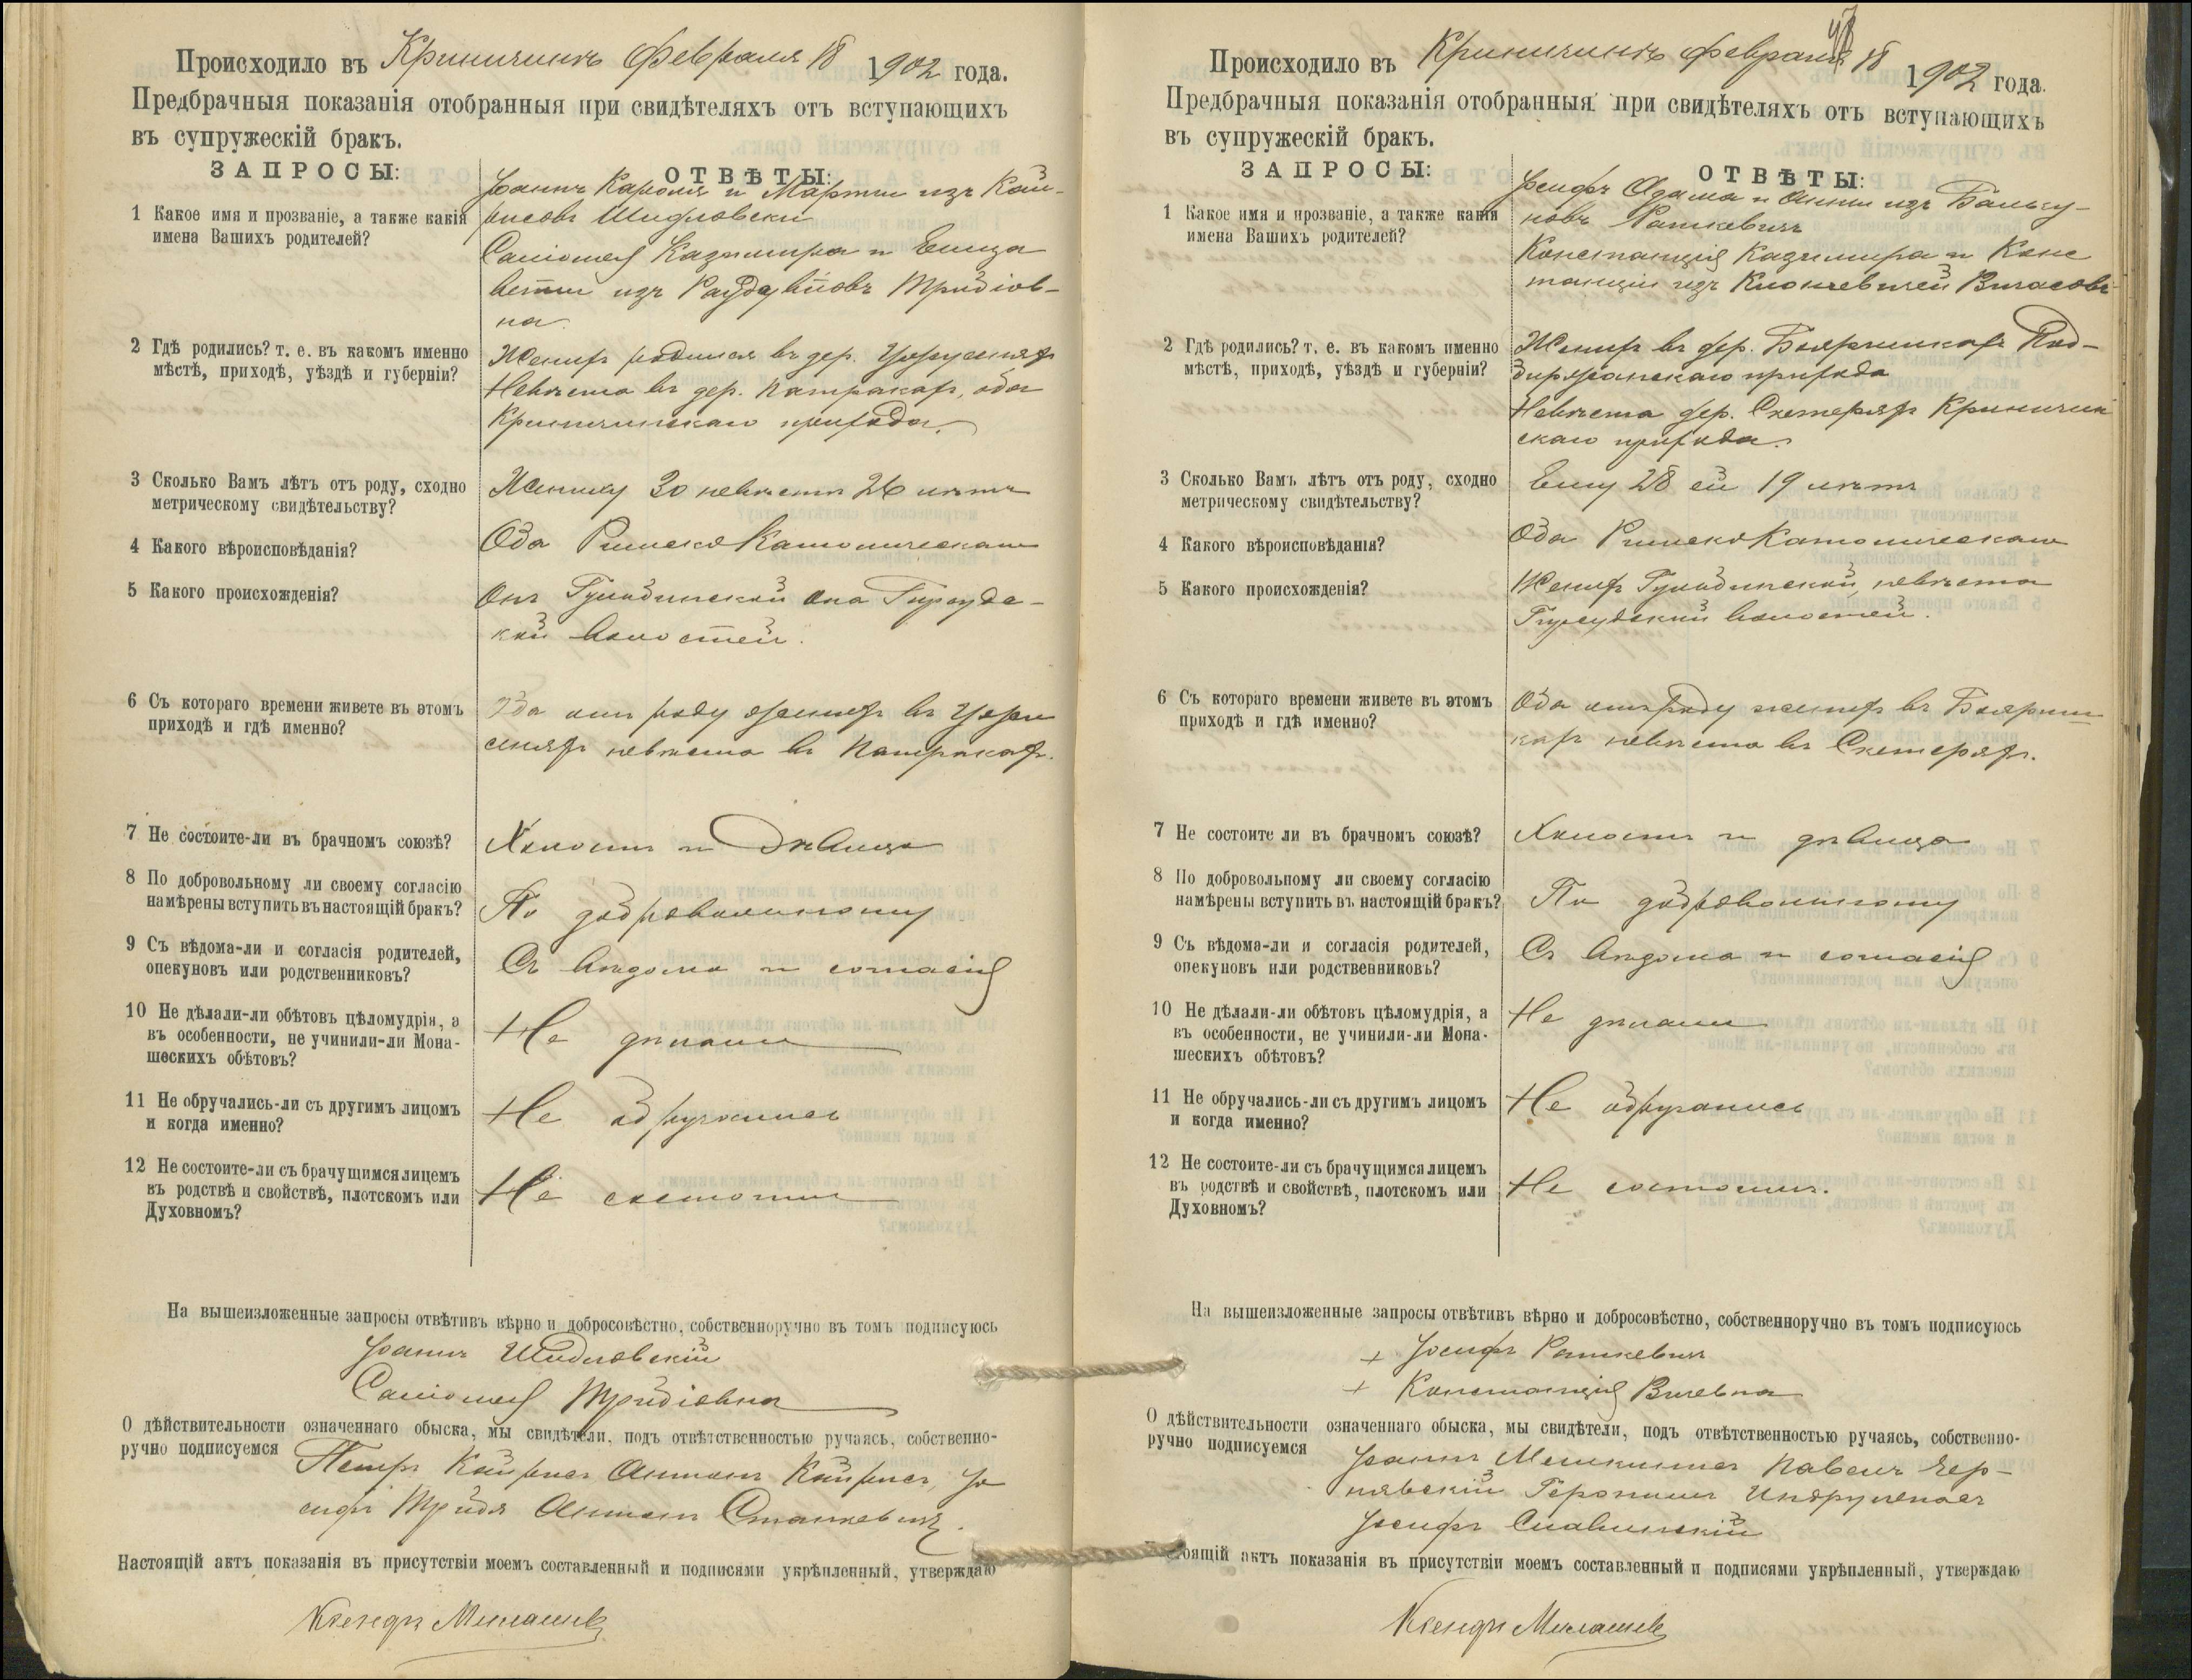 Происходило въ Криничинъ Февраля 18 1902 года.
Предбрачныя показанія отобранныя при свидѣтеляхъ отъ вступающихъ
въ супружескій бракъ.
ЗАПРОСЫ:
ОТВѢТЫ:
1 Какое имя и прозваніе, а также какія
имена Вашихъ родителей?
Іоаннъ Кароля и Марты изъ Кай-
рисовъ Шидловски
Саломея Казимира и Елиза
веты изъ Мрыдіов-
на
2 Гдѣ родились? т. е. въ какомъ именно
мѣстѣ, приходѣ, уѣздѣ и губерніи?
Женихъ родился въ дер.
Невѣста въ дер. Патракахъ, оба
Криничинскаго прихода.
3 Сколько Вамъ лѣтъ отъ роду, сходно
метрическому свидѣтельству?
Жениху 30 невѣстѣ 26 лѣтъ
4 Какого вѣроисповѣданія?
Оба Римско Католическаго
5 Какого происхожденія?
Онъ она
кой волостей.
6 Съ котораго времени живете въ этомъ
приходѣ и гдѣ именно?
Оба отъ роду женихъ въ
невѣста въ Патракахъ.
7 Не состоите-ли въ брачномъ союзѣ?
Холостъ и дѣвица
8 По добровольному ли своему согласію
намѣрены вступить въ настоящій бракъ?
По добровольному
9 Съ вѣдома-ли и согласія родителей,
опекуновъ или родственниковъ?
Съ вѣдома и согласія
10 Не дѣлали-ли обѣтовъ цѣломудрія, а
въ особенности, не учинили-ли Мона-
шескихъ обѣтовъ?
Не дѣлали
11 Не обручались-ли съ другимъ лицомъ
и когда именно?
Не обручались
12 Не состоите-ли съ брачущимся лицемъ
въ родствѣ и свойствѣ, плотскомъ или
Духовномъ?
Не состоимъ
На вышеизложенные запросы отвѣтивъ вѣрно и добросовѣстно, собственноручно въ томъ подписуюсь
Іоаннъ Шидловскій
Саломея
О дѣйствительности означеннаго обыска, мы свидѣтели, подъ отвѣтственностью ручаясь, собственно-
ручно подписуемся
Петръ Кайрисъ Антонъ Кайрисъ, Іо
сифъ Антонъ Станкевичъ.
Настоящій актъ показанія въ присутствіи моемъ составленный и подписями укрѣпленный, утверждаю
Ксендзъ
Происходило въ Криничинъ Февраля 18 1902 года.
Предбрачныя показанія отобранныя при свидѣтеляхъ отъ вступающихъ
въ супружескій бракъ.
ЗАПРОСЫ:
ОТВѢТЫ:
1 Какое имя и прозваніе, а также какія
имена Вашихъ родителей?
Іосифъ Адама и Анны изъ Бальсу-
новъ Рашкевичъ
Констанція Казимира и Конс
танціи изъ
2 Гдѣ родились? т. е. въ какомъ именно
мѣстѣ, приходѣ, уѣздѣ и губерніи?
Женихъ въ дер. Бояришкахъ Под-
прихода
Невѣста дер. Скетеряхъ Криничин
скаго прихода.
3 Сколько Вамъ лѣтъ отъ роду, сходно
метрическому свидѣтельству?
Ему 28 ей 19 лѣтъ
4 Какого вѣроисповѣданія?
Оба Римско Католическаго
5 Какого происхожденія?
Женихъ невѣста
волостей.
6 Съ котораго времени живете въ этомъ
приходѣ и гдѣ именно?
Оба отъ роду женихъ въ Бояриш
кахъ невѣста въ Скетеряхъ.
7 Не состоите ли въ брачномъ союзѣ?
Холостъ и дѣвица
8 По добровольному ли своему согласію
намѣрены вступить въ настоящій бракъ?
По добровольному
9 Съ вѣдома-ли и согласія родителей,
опекуновъ или родственниковъ?
Съ вѣдома и согласія
10 Не дѣлали-ли обѣтовъ цѣломудрія, а
въ особенности, не учинили-ли Мона-
шескихъ обѣтовъ?
Не дѣлали
11 Не обручались-ли съ другимъ лицомъ
и когда именно?
Не обручались
12 Не состоите-ли съ брачущимся лицемъ
въ родствѣ и свойствѣ, плотскомъ или
Духовномъ?
Не состоимъ.
На вышеизложенные запросы отвѣтивъ вѣрно и добросовѣстно, собственноручно въ томъ подписуюсь
+ Іосифъ Рашкевичъ
+ Констанція
О дѣйствительности означеннаго обыска, мы свидѣтели, подъ отвѣтственностью ручаясь, собственно-
ручно подписуемся
Іоаннъ Павелъ Чер-
нявскій Геронимъ
Іосифъ Славинскій
тоящій актъ показанія въ присутствіи моемъ составленный и подписями укрѣпленный, утверждаю
Ксендзъ